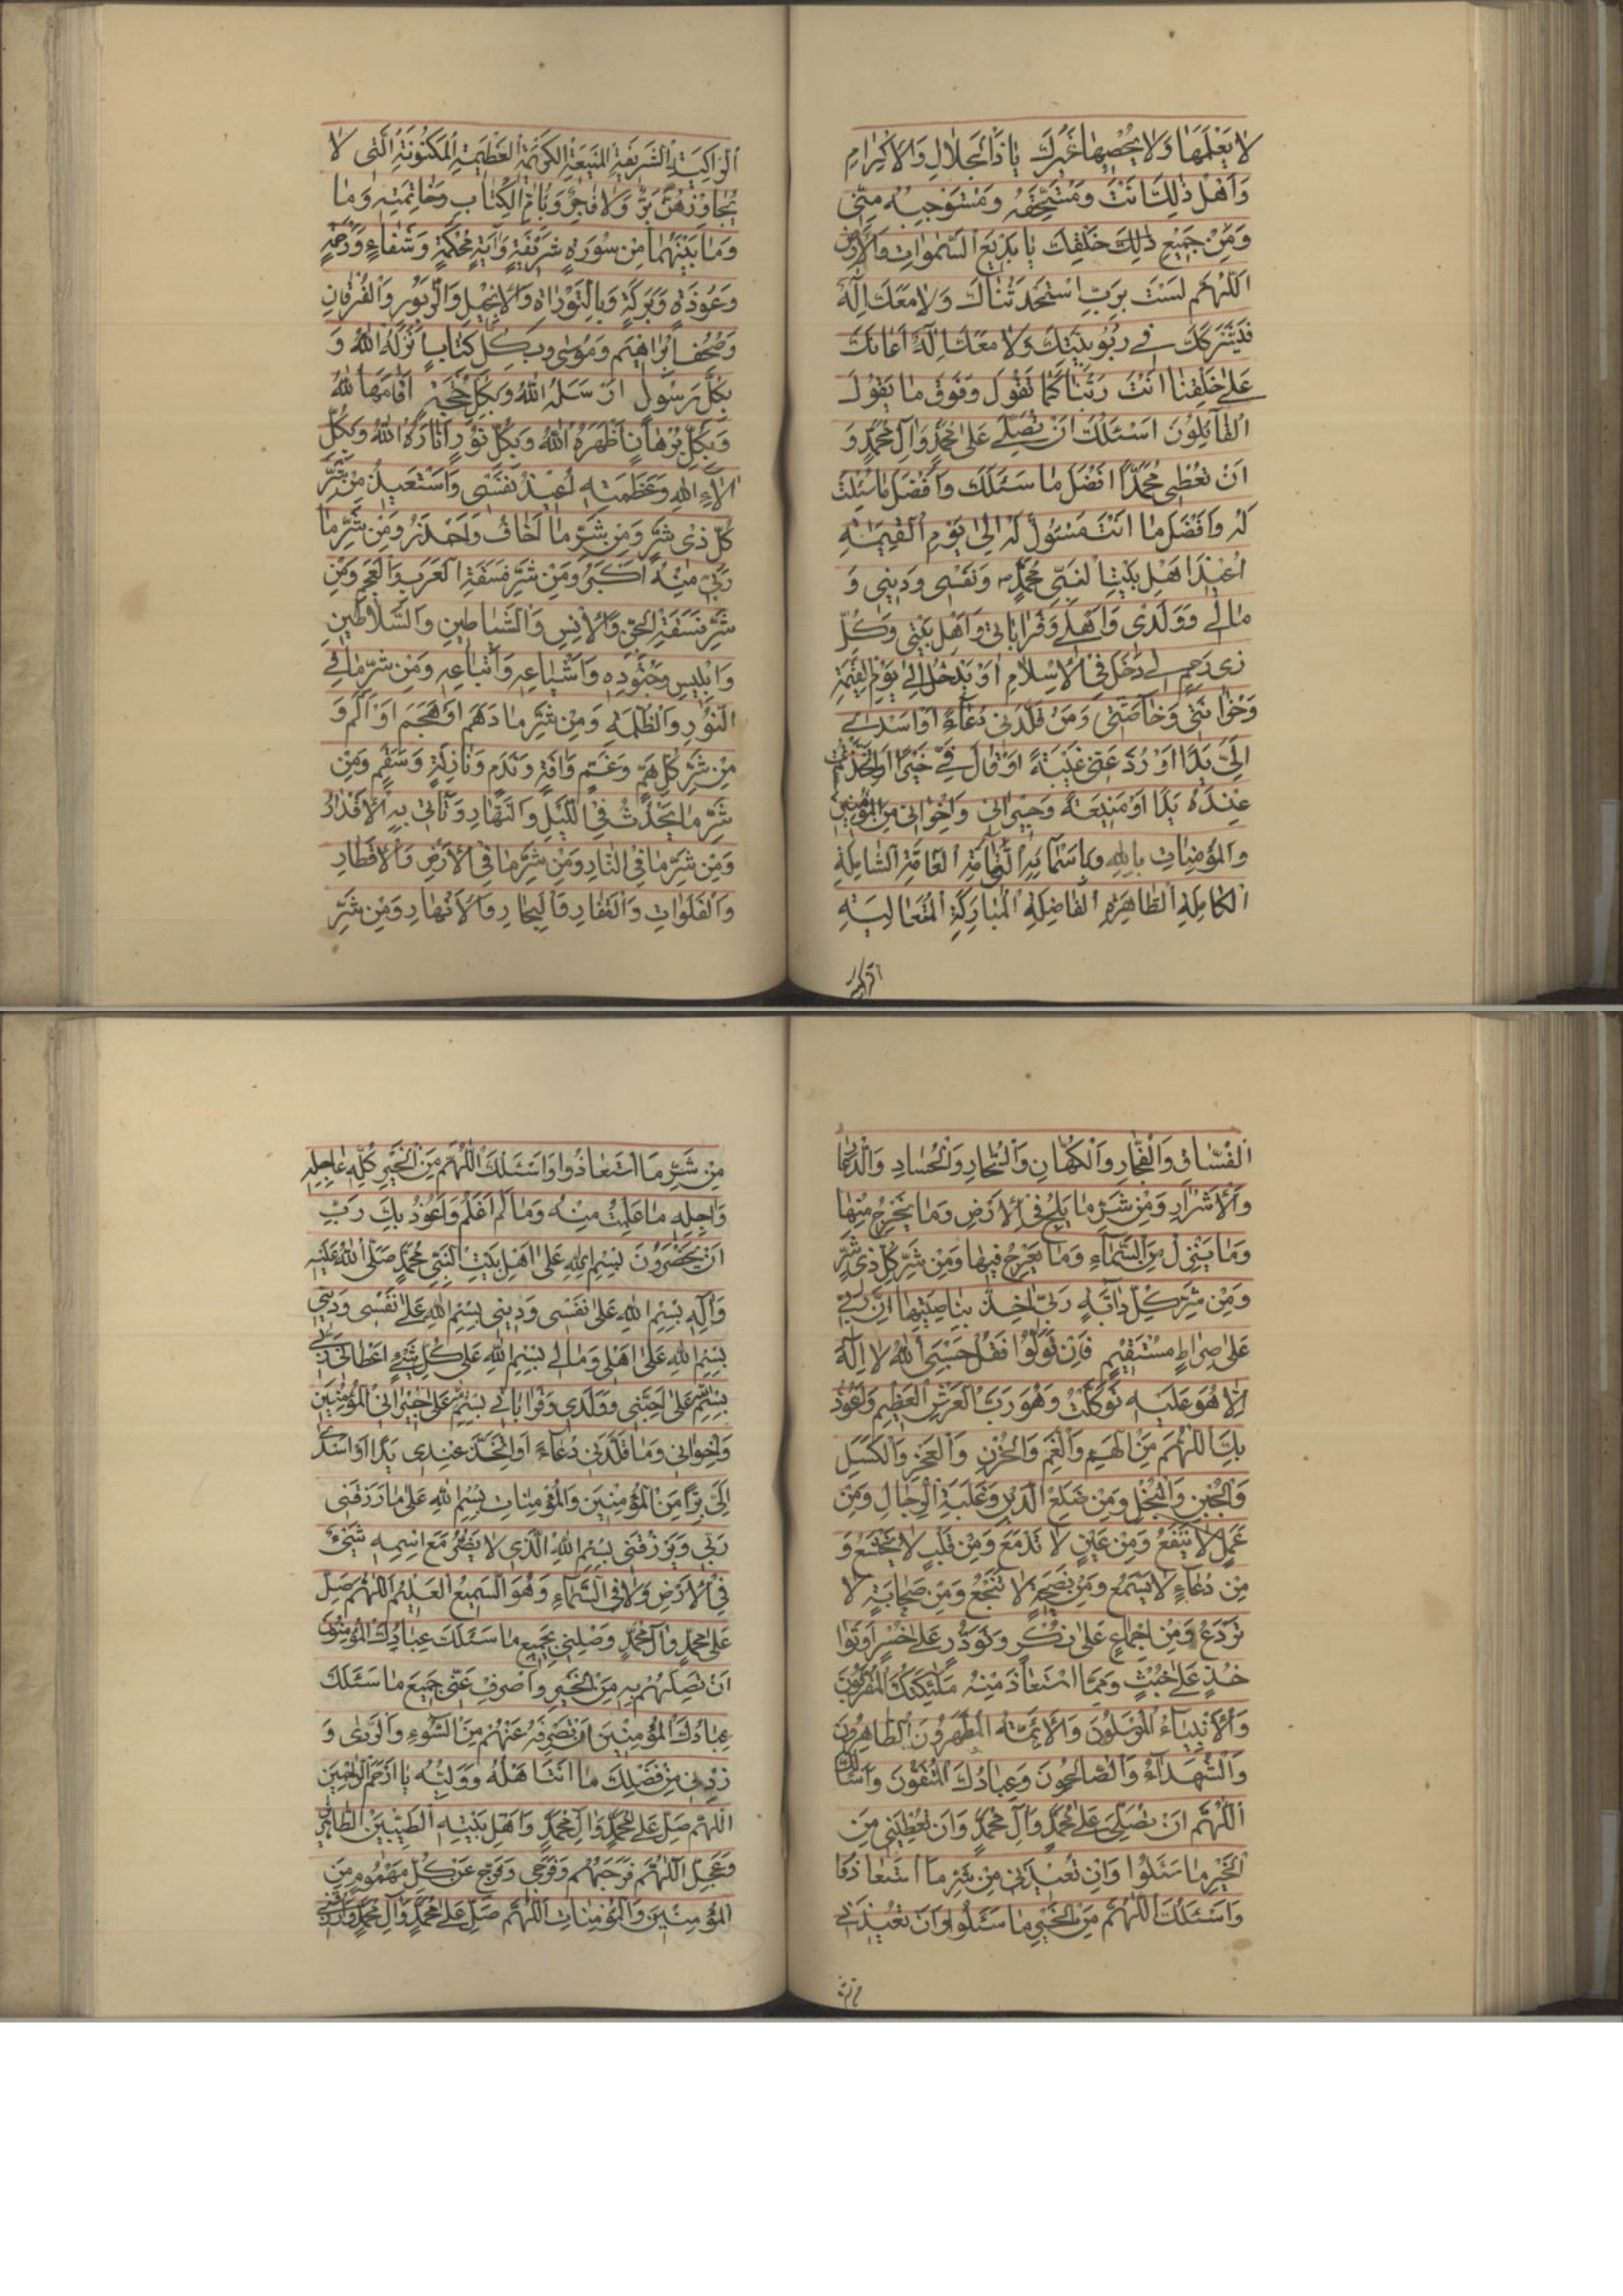 لا يَعْلَمُهَا وَلا يُحْصِيهَا غَيْرُكَ يَا ذَا الْجَلالِ وَالْاِكْرَامِ
وَاَهْلُ ذٰلِكَ اَنْتَ وَمُسْتَحِقُّهُ وَمُسْتَوْجِبُهُ مِنّي
وَمِنْ جَمِيعِ ذٰلِكَ خَلْقِكَ يَا بَدِيعَ السَّمٰوَاتِ وَالْاَرْضِ
اَللّٰهُمَّ لَسْتَ بِرَبٍّ اسْتَحْدَثْنَاكَ وَلا مَعَكَ اِلٰهٌ
فَيَشْرَكَكَ في رُبُوبِيَّتِكَ وَلا مَعَكَ اِلٰهٌ اَعَانَكَ
عَلٰى خَلْقِنَا اَنْتَ رَبُّنَا كَمَا نَقُولُ وَفَوْقَ مَا يَقُولُ
الْقَآئِلُونَ اَسْئَلُكَ اَنْ تُصَلِّيَ عَلٰى مُحَمَّدٍ وَآلِ مُحَمَّدٍ وَ
اَنْ تُعْطِيَ مُحَمَّدًا اَفْضَلَ مَا سَئَلَكَ وَاَفْضَلَ مَا سُئِلْتَ
لَهُ وَاَفْضَلَ مَا اَنْتَ مَسْئُولٌ لَهُ اِلٰى يَوْمِ الْقِيٰمَةِ
اُعِيذُ اَهْلَ بَيْتِ النَّبِيِّ مُحَمَّدٍ وَنَفْسِي وَدِيني وَ
مَالي وَوَلَدِي وَاَهْلي وَقَرَابَاتي وَاَهْلَ بَيْتي وَكُلَّ
ذِي رَحِمٍ لي دَخَلَ فِي الْاِسْلامِ اَوْ يَدْخُلُ اِلٰى يَوْمِ الْقِيٰمَةِ
وَحُزَانَتي وَخَآصَّتي وَمَنْ قَلَّدَني دُعَآءً اَوْ اَسْدٰى
اِلَيَّ يَدًا اَوْ رَدَّ عَنّي غَيْبَةً اَوْ قَالَ فِيَّ خَيْرًا اَوِ اتَّخَذْتُ
عِنْدَهُ يَدًا اَوْ صَنِيعَةً وَجِيرَاني وَاِخْوَاني مِنَ الْمُؤْمِنِينَ
وَالْمُؤْمِنَاتِ بِاللهِ وَبِاَسْمَآئِهِ التَّآمَّةِ الْعَآمَّةِ الشَّامِلَةِ
الْكَامِلَةِ الطَّاهِرَةِ الْفَاضِلَةِ الْمُبَارَكَةِ الْمُتَعَالِيَةِ
الزَّاكِيَةِ الشَّرِيفَةِ الْمَنِيعَةِ الْكَرِيمَةِ الْعَظِيمَةِ الْمَكْنُونَةِ الَّتي لا
يُجَاوِزُهُنَّ بَرٌّ وَلا فَاجِرٌ وَبِاُمِّ الْكِتَابِ وَخَاتِمَتِهِ وَمَا
وَمَا بَيْنَهُمَا مِنْ سُورَةٍ شَرِيفَةٍ وَآيَةٍ مُحْكَمَةٍ وَشِفَاءٍ وَرَحْمَةٍ
وَعُوذَةٍ وَبَرَكَةٍ وَبِالتَّوْرٰاةِ وَالْاِنْجِيلِ وَالزَّبُورِ وَالْفُرْقَانِ
وَصُحُفِ اِبْرَاهِيمَ وَمُوسٰى وَبِكُلِّ كِتَابٍ اَنْزَلَهُ اللهُ وَ
بِكُلِّ رَسُولٍ اَرْسَلَهُ اللهُ وَبِكُلِّ حُجَّةٍ اَقَامَهَا اللهُ
وَبِكُلِّ بُرْهَانٍ اَظْهَرَهُ اللهُ وَبِكُلِّ نُورٍ اَنَارَهُ اللهُ وَبِكُلِّ
اٰلآءِ اللهِ وَعَظَمَتِهِ اُعِيذُ نَفْسِي وَاَسْتَعِيذُ مِنْ شَرِّ
كُلِّ ذِي شَرٍّ وَمِنْ شَرِّ مَا اَخَافُ وَاَحْذَرُ وَمِنْ شَرِّ مَا
رَبّي مِنْهُ اَكْبَرُ وَمِنْ شَرِّ فَسَقَةِ الْعَرَبِ وَالْعَجَمِ وَمِنْ
شَرِّ فَسَقَةِ الْجِنِّ وَالْاِنْسِ وَالشَّيَاطِينِ وَالسَّلاطِينِ
وَاِبْلِيسَ وَجُنُودِهِ وَاَشْيَاعِهِ وَاَتْبَاعِهِ وَمِنْ شَرِّ مَا فِي
النُّورِ وَالظُّلْمَةِ وَمِنْ شَرِّ مَا دَهَمَ اَوْ هَجَمَ اَوْ اَلَمَّ وَ
مِنْ شَرِّ كُلِّ هَمٍّ وَغَمٍّ وَآفَةٍ وَنَدَمٍ وَنَازِلَةٍ وَسَقَمٍ وَمِنْ
شَرِّ مَا يَحْدُثُ فِي اللَّيْلِ وَالنَّهَارِ وَتَأْتي بِهِ الْاَقْدَارُ
وَمِنْ شَرِّ مَا فِي النَّارِ وَمِنْ شَرِّ مَا فِي الْاَرْضِ وَالْاَقْطَارِ
وَالْفَلَوَاتِ وَالْقِفَارِ وَالْبِحَارِ وَالْاَنْهَارِ وَمِنْ شَرِّ
الْفُسَّاقِ وَالْفُجَّارِ وَالْكُهَّانِ وَالسُّحَّارِ وَالْحُسَّادِ وَالذُّعَّارِ
وَالْاَشْرَارِ وَمِنْ شَرِّ مَا يَلِجُ فِي الْاَرْضِ وَمَا يَخْرُجُ مِنْهَا
وَمَا يَنْزِلُ مِنَ السَّمَآءِ وَمَا يَعْرُجُ فِيهَا وَمِنْ شَرِّ كُلِّ ذِي شَرٍّ
وَمِنْ شَرِّ كُلِّ دَآبَّةٍ رَبّي آخِذٌ بِنَاصِيَتِهَا اِنَّ رَبّي
عَلٰى صِرَاطٍ مُسْتَقِيمٍ فَاِنْ تَوَلَّوْا فَقُلْ حَسْبِيَ اللهُ لا اِلٰهَ
اِلّا هُوَ عَلَيْهِ تَوَكَّلْتُ وَهُوَ رَبُّ الْعَرْشِ الْعَظِيمِ وَاَعُوذُ
بِكَ اللّٰهُمَّ مِنَ الْهَمِّ وَالْغَمِّ وَالْحُزْنِ وَالْعَجْزِ وَالْكَسَلِ
وَالْجُبْنِ وَالْبُخْلِ وَمِنْ ضَلَعِ الدَّيْنِ وَغَلَبَةِ الرِّجَالِ وَمِنْ
عَمَلٍ لا يَنْفَعُ وَمِنْ عَيْنٍ لا تَدْمَعُ وَمِنْ قَلْبٍ لا يَخْشَعُ وَ
مِنْ دُعَآءٍ لا يُسْمَعُ وَمِنْ نَصِيحَةٍ لا تَنْجَعُ وَمِنْ صَحَابَةٍ لا
تَرْدَعُ وَمِنْ اِجْمَاعٍ عَلٰى نُكْرٍ وَتَوَدُّدٍ عَلٰى خُسْرٍ اَوْ تَوٰا
خُذٍ عَلٰى خُبْثٍ وَمِمَّا اسْتَعَاذَ مِنْهُ مَلٰئِكَتُكَ الْمُقَرَّبُونَ
وَالْاَنْبِيَاءُ الْمُرْسَلُونَ وَالْاَئِمَّةُ الْمُطَهَّرُونَ الطَّاهِرُونَ
وَالشُّهَدَآءُ وَالصَّالِحُونَ وَعِبَادُكَ الْمُتَّقُونَ وَاَسْأَلُكَ
اللّٰهُمَّ اَنْ تُصَلِّيَ عَلٰى مُحَمَّدٍ وَآلِ مُحَمَّدٍ وَاَنْ تُعْطِيَني مِنَ
الْخَيْرِ مَا سَئَلُوا وَاَنْ تُعِيذَني مِنْ شَرِّ مَا اسْتَعَاذُوا
وَاَسْئَلُكَ اللّٰهُمَّ مِنَ الْخَيْرِ مَا سَئَلُوا وَاَنْ تُعِيذَني
مِنْ شَرِّ مَا اسْتَعَاذُوا وَاَسْئَلُكَ اللّٰهُمَّ مِنَ الْخَيْرِ كُلِّهِ عَاجِلِهِ
وَآجِلِهِ مَا عَلِمْتُ مِنْهُ وَمَا لَمْ اَعْلَمْ وَاَعُوذُ بِكَ رَبِّ
اَنْ يَحْضُرُونَ بِسْمِ اللهِ عَلٰى اَهْلِ بَيْتِ النَّبِيِّ مُحَمَّدٍ صَلَّى اللهُ عَلَيْهِ
وَآلِهِ بِسْمِ اللهِ عَلٰى نَفْسِي وَدِيني بِسْمِ اللهِ عَلٰى نَفْسِي وَدِيني
بِسْمِ اللهِ عَلٰى اَهْلي وَمَالي بِسْمِ اللهِ عَلٰى كُلِّ شَيْءٍ اَعْطَاني رَبّي
بِسْمِ اللهِ عَلٰى اَحِبَّتي وَوَلَدِي وَقَرَابَاتي بِسْمِ اللهِ عَلٰى جِيرَانِي الْمُؤْمِنِينَ
وَاِخْوَاني وَمَا قَلَّدَني دُعَآءً اَوِ اتَّخَذَ عِنْدِي يَدًا اَوْ اَسْدٰى
اِلَيَّ بِرًّا مِنَ الْمُؤْمِنِينَ وَالْمُؤْمِنَاتِ بِسْمِ اللهِ عَلٰى مَا رَزَقَني
رَبّي وَيَرْزُقُني بِسْمِ اللهِ الَّذِي لا يَضُرُّ مَعَ اسْمِهِ شَيْءٌ
فِي الْاَرْضِ وَلا فِي السَّمَآءِ وَهُوَ السَّمِيعُ الْعَلِيمُ اَللّٰهُمَّ صَلِّ
عَلٰى مُحَمَّدٍ وَآلِ مُحَمَّدٍ وَصِلْني بِجَمِيعِ مَا سَئَلَكَ عِبَادُكَ الْمُؤْمِنُونَ
اَنْ تَصِلَهُمْ بِهِ مِنَ الْخَيْرِ وَاصْرِفْ عَنّي جَمِيعَ مَا سَئَلَكَ
عِبَادُكَ الْمُؤْمِنِينَ اَنْ تَصْرِفَهُ عَنْهُمْ مِنَ السُّوءِ وَالرَّدٰى وَ
زِدْني مِنْ فَضْلِكَ مَا اَنْتَ اَهْلُهُ وَوَلِيُّهُ يَا اَرْحَمَ الرَّاحِمِينَ
اَللّٰهُمَّ صَلِّ عَلٰى مُحَمَّدٍ وَآلِ مُحَمَّدٍ وَاَهْلِ بَيْتِهِ الطَّيِّبِينَ الطَّاهِرِينَ
وَعَجِّلِ اللّٰهُمَّ فَرَجَهُمْ وَفَرَجي وَفَرِّجْ عَنْ كُلِّ مَهْمُومٍ مِنَ
الْمُؤْمِنِينَ وَالْمُؤْمِنَاتِ اَللّٰهُمَّ صَلِّ عَلٰى مُحَمَّدٍ وَآلِ مُحَمَّدٍ وَارْزُقْني